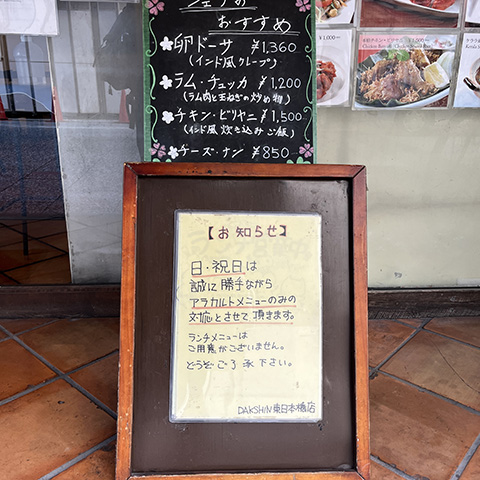 シェフの
おすすめ
卵ドーサ ¥1,360
(インド風クレープ)
ラム・チュッカ ¥1,200
(ラム肉と玉ねぎの炒め物)
チキン・ビリヤニ ¥1,500
(インド風 炊き込みご飯)
チーズ・ナン ¥850
【お知らせ】
日・祝日は
誠に勝手ながら
アラカルトメニューのみの
対応とさせて頂きます。
ランチメニューは
ご用意がございません。
どうぞご了承下さい。
DAKSHIN東日本橋店